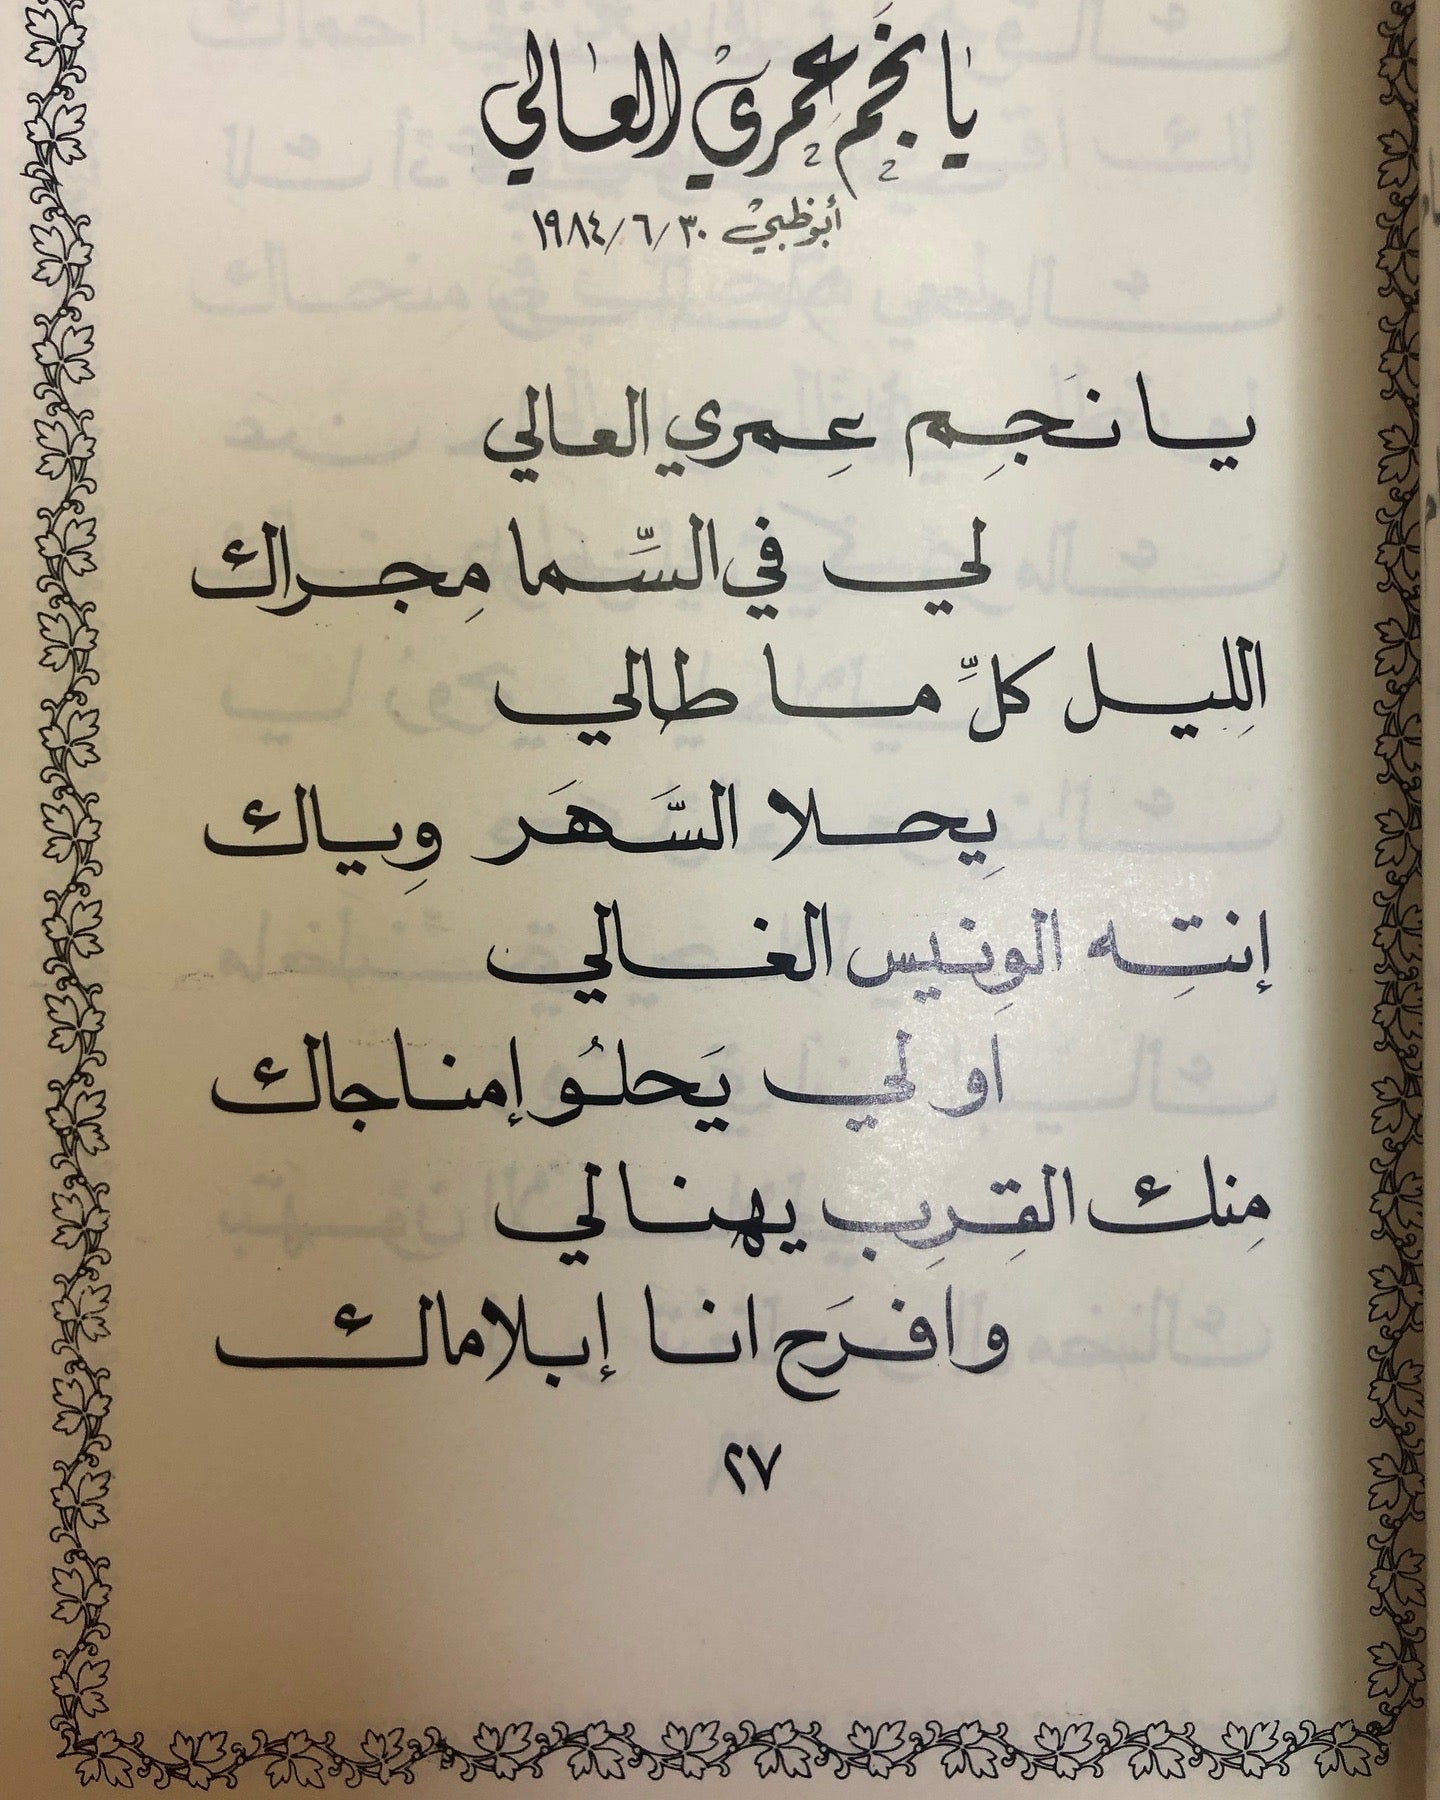 يا نجَم عِمري العالي
أبوظبيْ ٣٠/٦/١٩٨٤
يا نَجِم عِمري العالي
لي في السِّما مِجراك
اللِيل كلِّ ما طالي
يِحلا السَّهَر وِياك
إنتِه الوِنيس الغالي
او لي يَحلُو إمناجاك
مِنك القِرِب يهنالي
وافرَح انا إبلاماك
٢٧